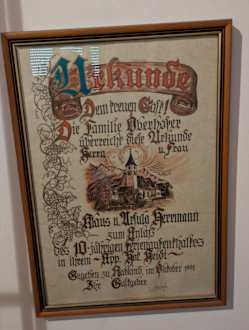 Urkunde
Dem treuen Gast!
Die Familie Oberhofer
überreicht diese Urkunde
Herrn u. Frau
Klaus u. Ursula Herrmann
zum Anlaß
des 10-jährigen Ferienaufenthaltes
in ihrem - App.
Gegeben zu im Oktober
Ihre Gastgeber